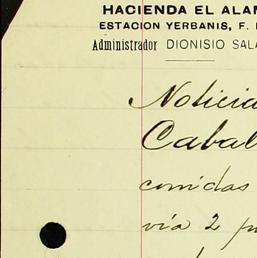 HACIENDA EL ALAM
ESTACION YERBANIS, F.
Administrador DIONISIO SALA
Noticia
Cabal
comidas
vía 2 p